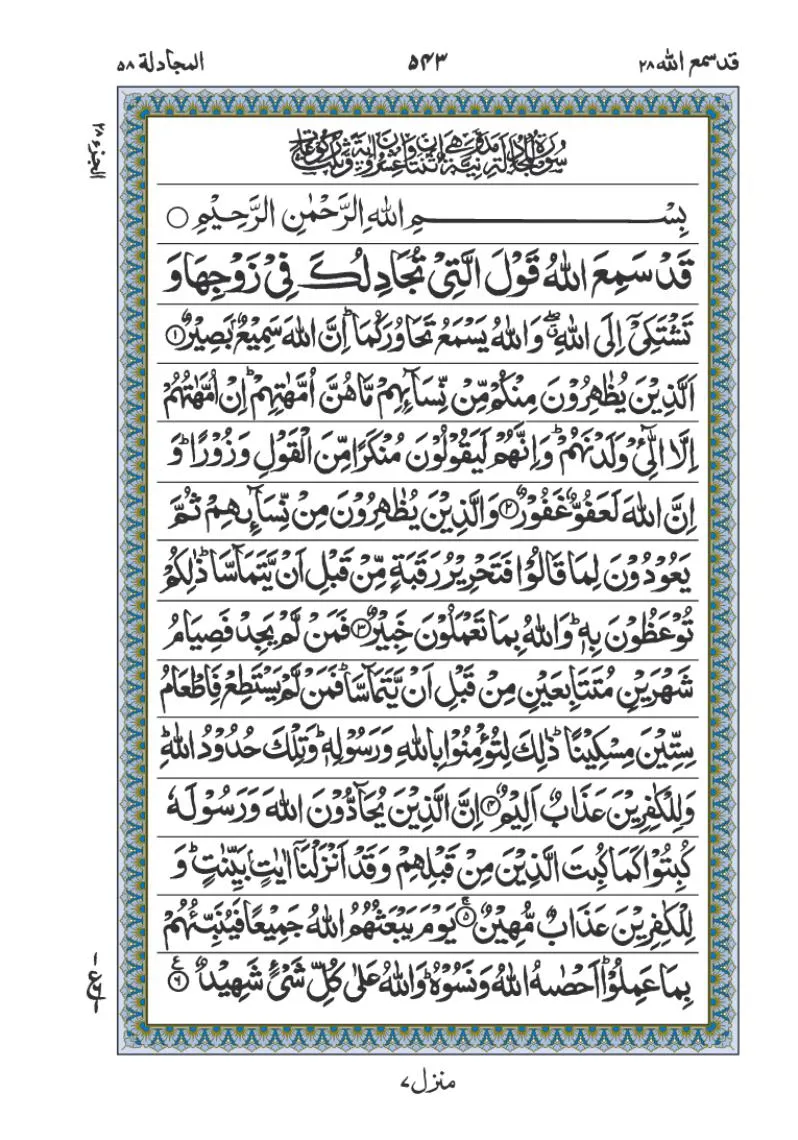 قد سمع الله ٢٨
٥٤٣
المجادلة ٥٨
الجزء ٢٨
سُوْرَةُ الْمُجَادَلَةِ مَدَنِيَّةٌ وَّهِيَ اثْنَتَانِ وَعِشْرُوْنَ اٰيَةً وَّثَلٰثُ رُكُوْعَاتٍ
بِسْمِ اللهِ الرَّحْمٰنِ الرَّحِيْمِ ○
قَدْ سَمِعَ اللهُ قَوْلَ الَّتِيْ تُجَادِلُكَ فِيْ زَوْجِهَا وَ
تَشْتَكِيْٓ اِلَى اللهِ ۖ وَاللهُ يَسْمَعُ تَحَاوُرَكُمَا ؕ اِنَّ اللهَ سَمِيْعٌۢ بَصِيْرٌ ١
اَلَّذِيْنَ يُظٰهِرُوْنَ مِنْكُمْ مِّنْ نِّسَآىِٕهِمْ مَّا هُنَّ اُمَّهٰتِهِمْ ؕ اِنْ اُمَّهٰتُهُمْ
اِلَّا الّٰٓـِٔيْ وَلَدْنَهُمْ ؕ وَاِنَّهُمْ لَيَقُوْلُوْنَ مُنْكَرًا مِّنَ الْقَوْلِ وَزُوْرًا ؕ وَ
اِنَّ اللهَ لَعَفُوٌّ غَفُوْرٌ ٢ وَالَّذِيْنَ يُظٰهِرُوْنَ مِنْ نِّسَآىِٕهِمْ ثُمَّ
يَعُوْدُوْنَ لِمَا قَالُوْا فَتَحْرِيْرُ رَقَبَةٍ مِّنْ قَبْلِ اَنْ يَّتَمَآسَّا ؕ ذٰلِكُمْ
تُوْعَظُوْنَ بِهٖ ؕ وَاللهُ بِمَا تَعْمَلُوْنَ خَبِيْرٌ ٣ فَمَنْ لَّمْ يَجِدْ فَصِيَامُ
شَهْرَيْنِ مُتَتَابِعَيْنِ مِنْ قَبْلِ اَنْ يَّتَمَآسَّا ۚ فَمَنْ لَّمْ يَسْتَطِعْ فَاِطْعَامُ
سِتِّيْنَ مِسْكِيْنًا ؕ ذٰلِكَ لِتُؤْمِنُوْا بِاللهِ وَرَسُوْلِهٖ ؕ وَتِلْكَ حُدُوْدُ اللهِ ؕ
وَلِلْكٰفِرِيْنَ عَذَابٌ اَلِيْمٌ ٤ اِنَّ الَّذِيْنَ يُحَآدُّوْنَ اللهَ وَرَسُوْلَهٗ
كُبِتُوْا كَمَا كُبِتَ الَّذِيْنَ مِنْ قَبْلِهِمْ وَقَدْ اَنْزَلْنَآ اٰيٰتٍۢ بَيِّنٰتٍ ؕ وَ
لِلْكٰفِرِيْنَ عَذَابٌ مُّهِيْنٌ ٥ يَوْمَ يَبْعَثُهُمُ اللهُ جَمِيْعًا فَيُنَبِّئُهُمْ
بِمَا عَمِلُوْا ؕ اَحْصٰىهُ اللهُ وَنَسُوْهُ ؕ وَاللهُ عَلٰى كُلِّ شَيْءٍ شَهِيْدٌ ٦
منزل ٧